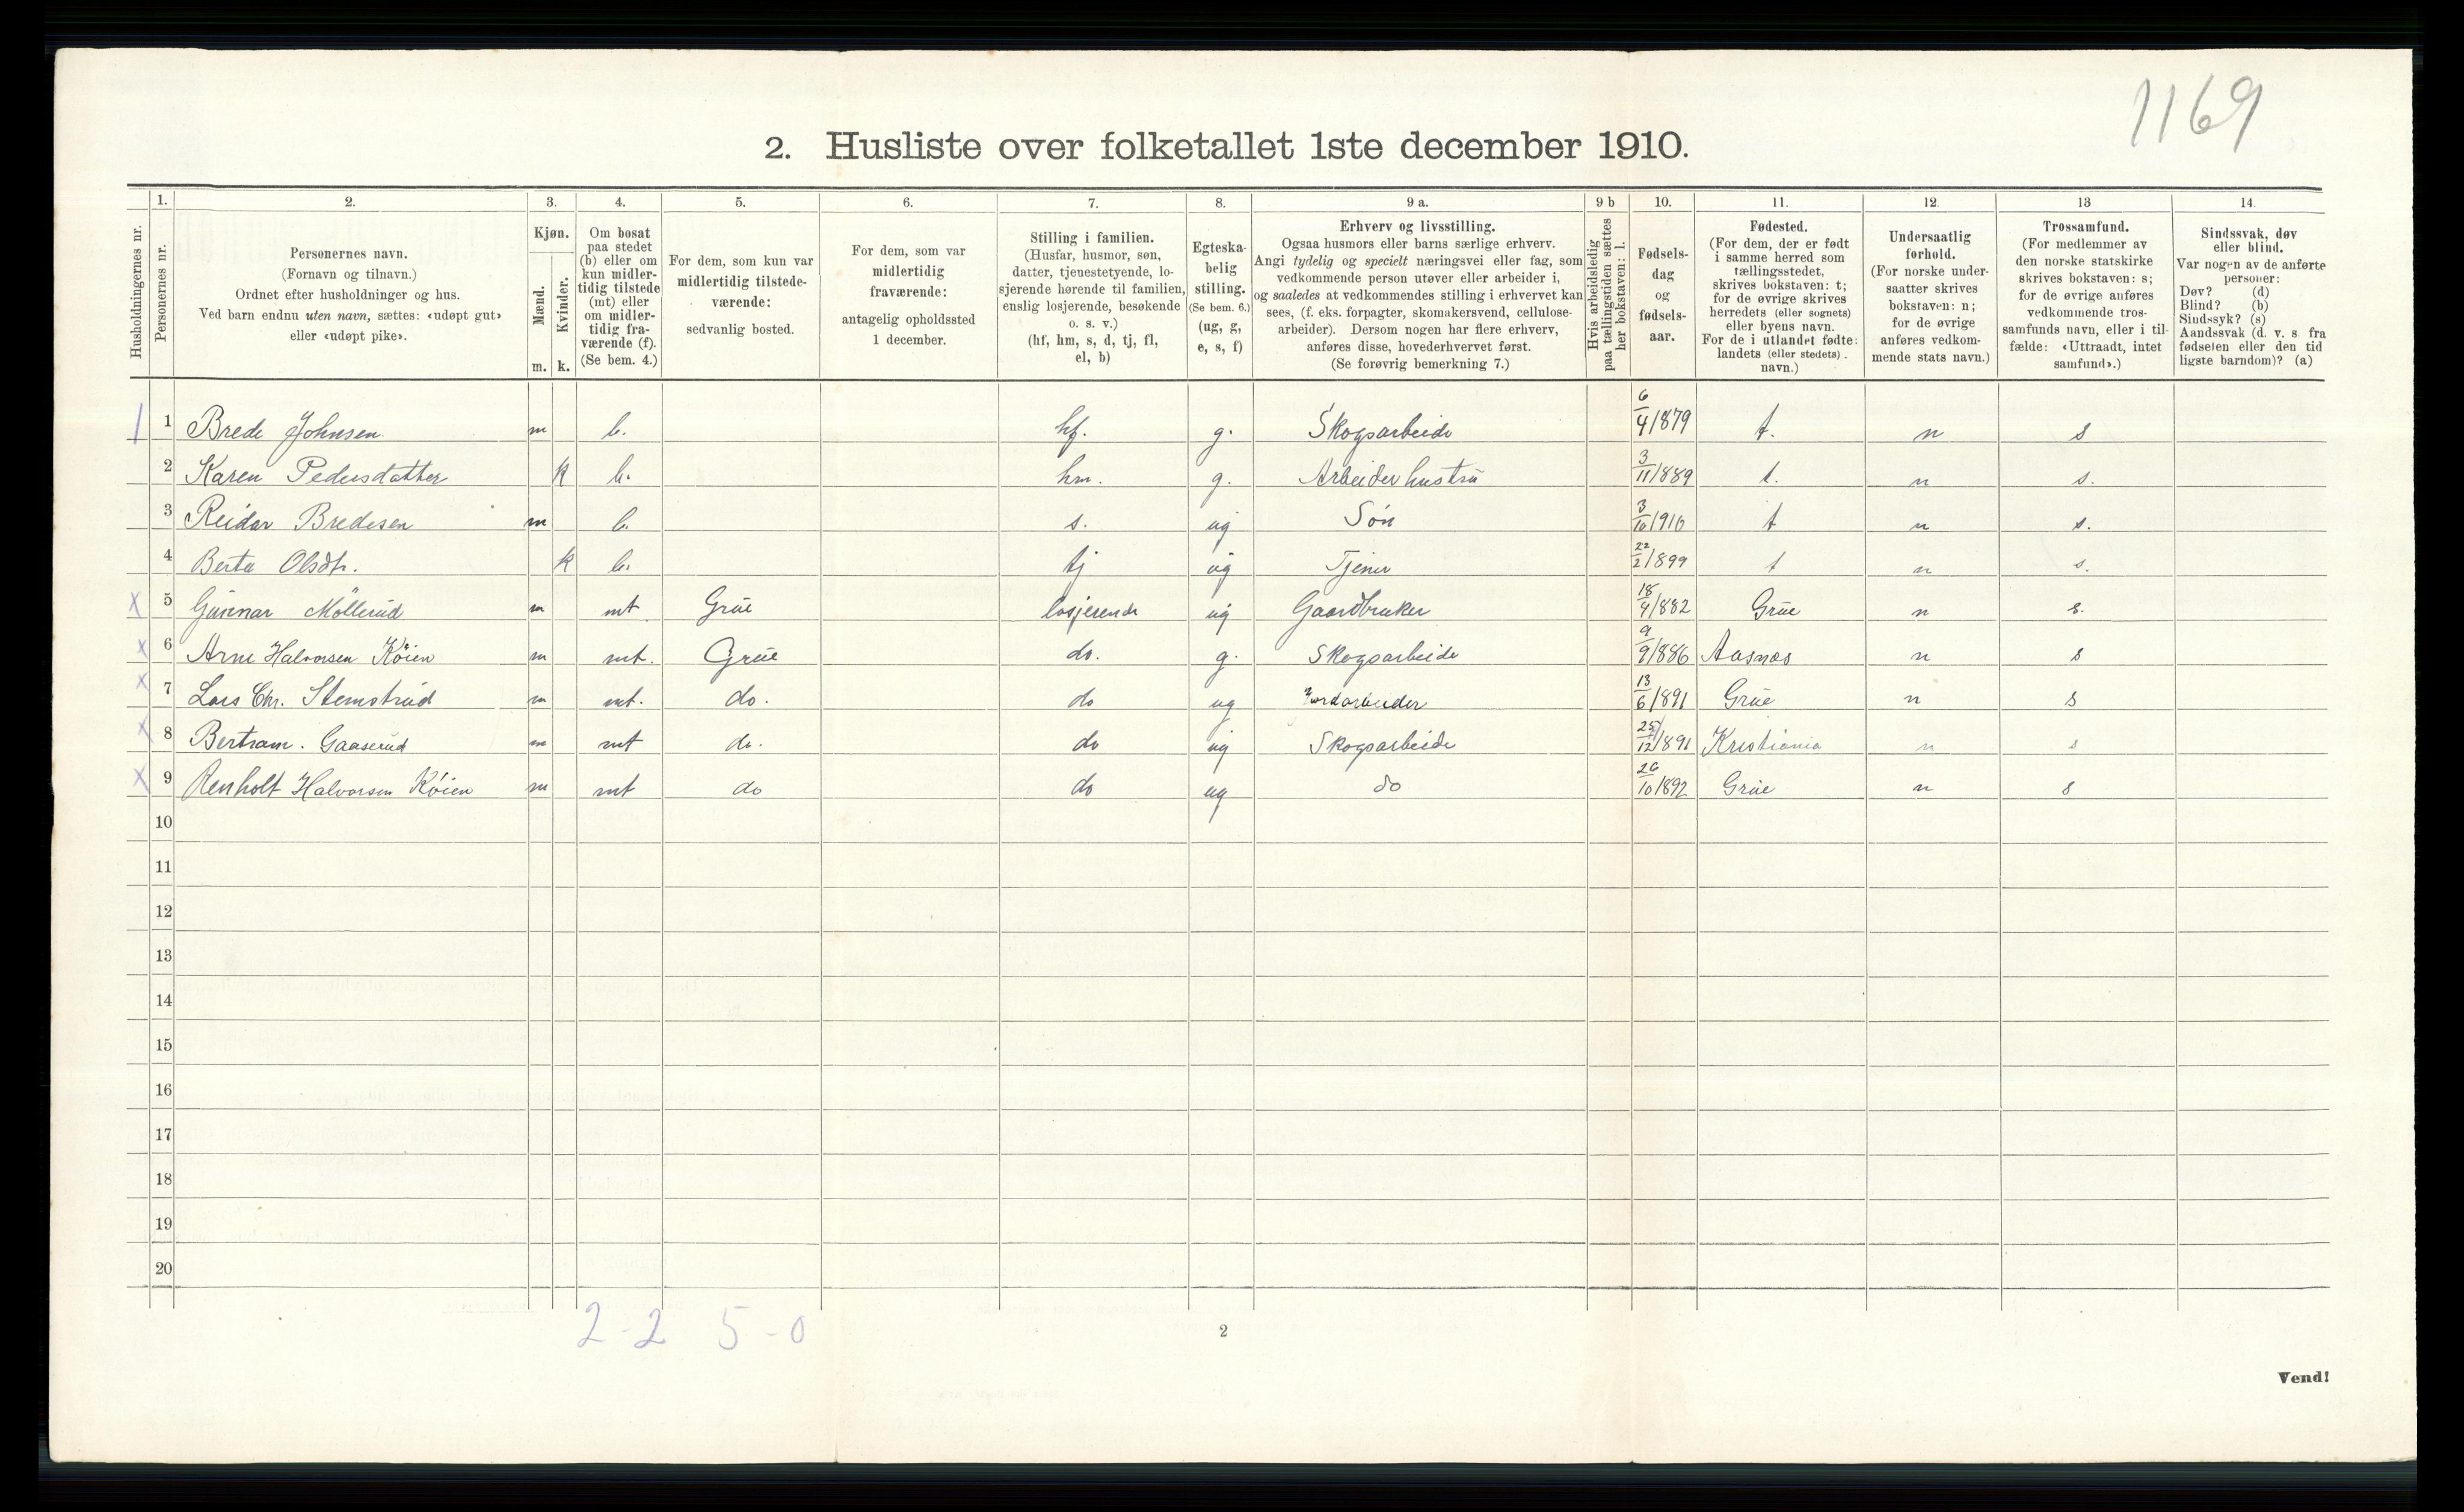 1169
2. Husliste over folketallet 1ste december 1910.
Husholdningernes nr.
1.
Personernes nr.
2.
Personernes navn.
(Fornavn og tilnavn.)
Ordnet efter husholdninger og hus.
Ved barn endnu uten navn, sættes: «udøpt gut»
eller «udøpt pike».
3.
Kjøn.
Mænd.
Kvinder.
m. k.
4.
Om bosat
paa stedet
(b) eller om
kun midler-
tidig tilstede
(mt) eller
om midler-
tidig fra-
værende (f).
(Se bem. 4.)
5.
For dem, som kun var
midlertidig tilstede-
værende:
sedvanlig bosted.
6.
For dem, som var
midlertidig
fraværende:
antagelig opholdssted
1 december.
7.
Stilling i familien.
(Husfar, husmor, søn,
datter, tjenestetyende, lo-
sjerende hørende til familien,
enslig losjerende, besøkende
o. s. v.)
(hf, hm, s, d, tj, fl,
el, b)
8.
Egteska-
belig
stilling.
(Se bem. 6.)
(ug, g,
e, s, f)
9 a.
Erhverv og livsstilling.
Ogsaa husmors eller barns særlige erhverv.
Angi tydelig og specielt næringsvei eller fag, som
vedkommende person utøver eller arbeider i,
og saaledes at vedkommendes stilling i erhvervet kan
sees, (f. eks. forpagter, skomakersvend, cellulose-
arbeider). Dersom nogen har flere erhverv,
anføres disse, hovederhvervet først.
(Se forøvrig bemerkning 7.)
9 b
Hvis arbeidsledig
paa tællingstiden sættes
her bokstaven: l.
10.
Fødsels-
dag
og
fødsels-
aar.
11.
Fødested.
(For dem, der er født
i samme herred som
tællingsstedet,
skrives bokstaven: t;
for de øvrige skrives
herredets (eller sognets)
eller byens navn.
For de i utlandet fødte:
landets (eller stedets)
navn.)
12.
Undersaatlig
forhold.
(For norske under-
saatter skrives
bokstaven: n;
for de øvrige
anføres vedkom-
mende stats navn.)
13
Trossamfund.
(For medlemmer av
den norske statskirke
skrives bokstaven: s;
for de øvrige anføres
vedkommende tros-
samfunds navn, eller i til-
fælde: «Uttraadt, intet
samfund».)
14.
Sindssvak, døv
eller blind.
Var nogen av de anførte
personer:
Døv? (d)
Blind? (b)
Sindssyk? (s)
Aandssvak (d. v. s. fra
fødselen eller den tid
ligste barndom)? (a)
1 Brede Johnsen m b. hf. g. Skogsarbeide 6/4/1879 t. n s
2 Karen Pedersdatter k b. hm. g. Arbeider hustru 3/11/1889 t. n s.
3 Reidar Bredesen m b. s. ug Søn 3/10/1910 t n s.
4 Berta Olsdtr. k b. tj ug Tjener 22/2/1899 t n s.
X 5 Gunnar Möllerud m mt Grue losjerende ug Gaardbruker 18/4/1882 Grue n s.
X 6 Arne Halvorsen Köien m mt. Grue do. g. Skogsarbeide 9/9/1886 Aasnæs n s
X 7 Lars Chr. Stemsrud m mt. do. do ug Jordarbeider 13/6/1891 Grue n s
X 8 Bertram. Gaaserud m mt do. do ug Skogsarbeide 25/12/1891 Kristiania n s
X 9 Renholt Halvorsen Köien m mt do do ug do 26/10/1892 Grue n s
10
11
12
13
14
15
16
17
18
19
20
2-2 5-0
2
Vend!